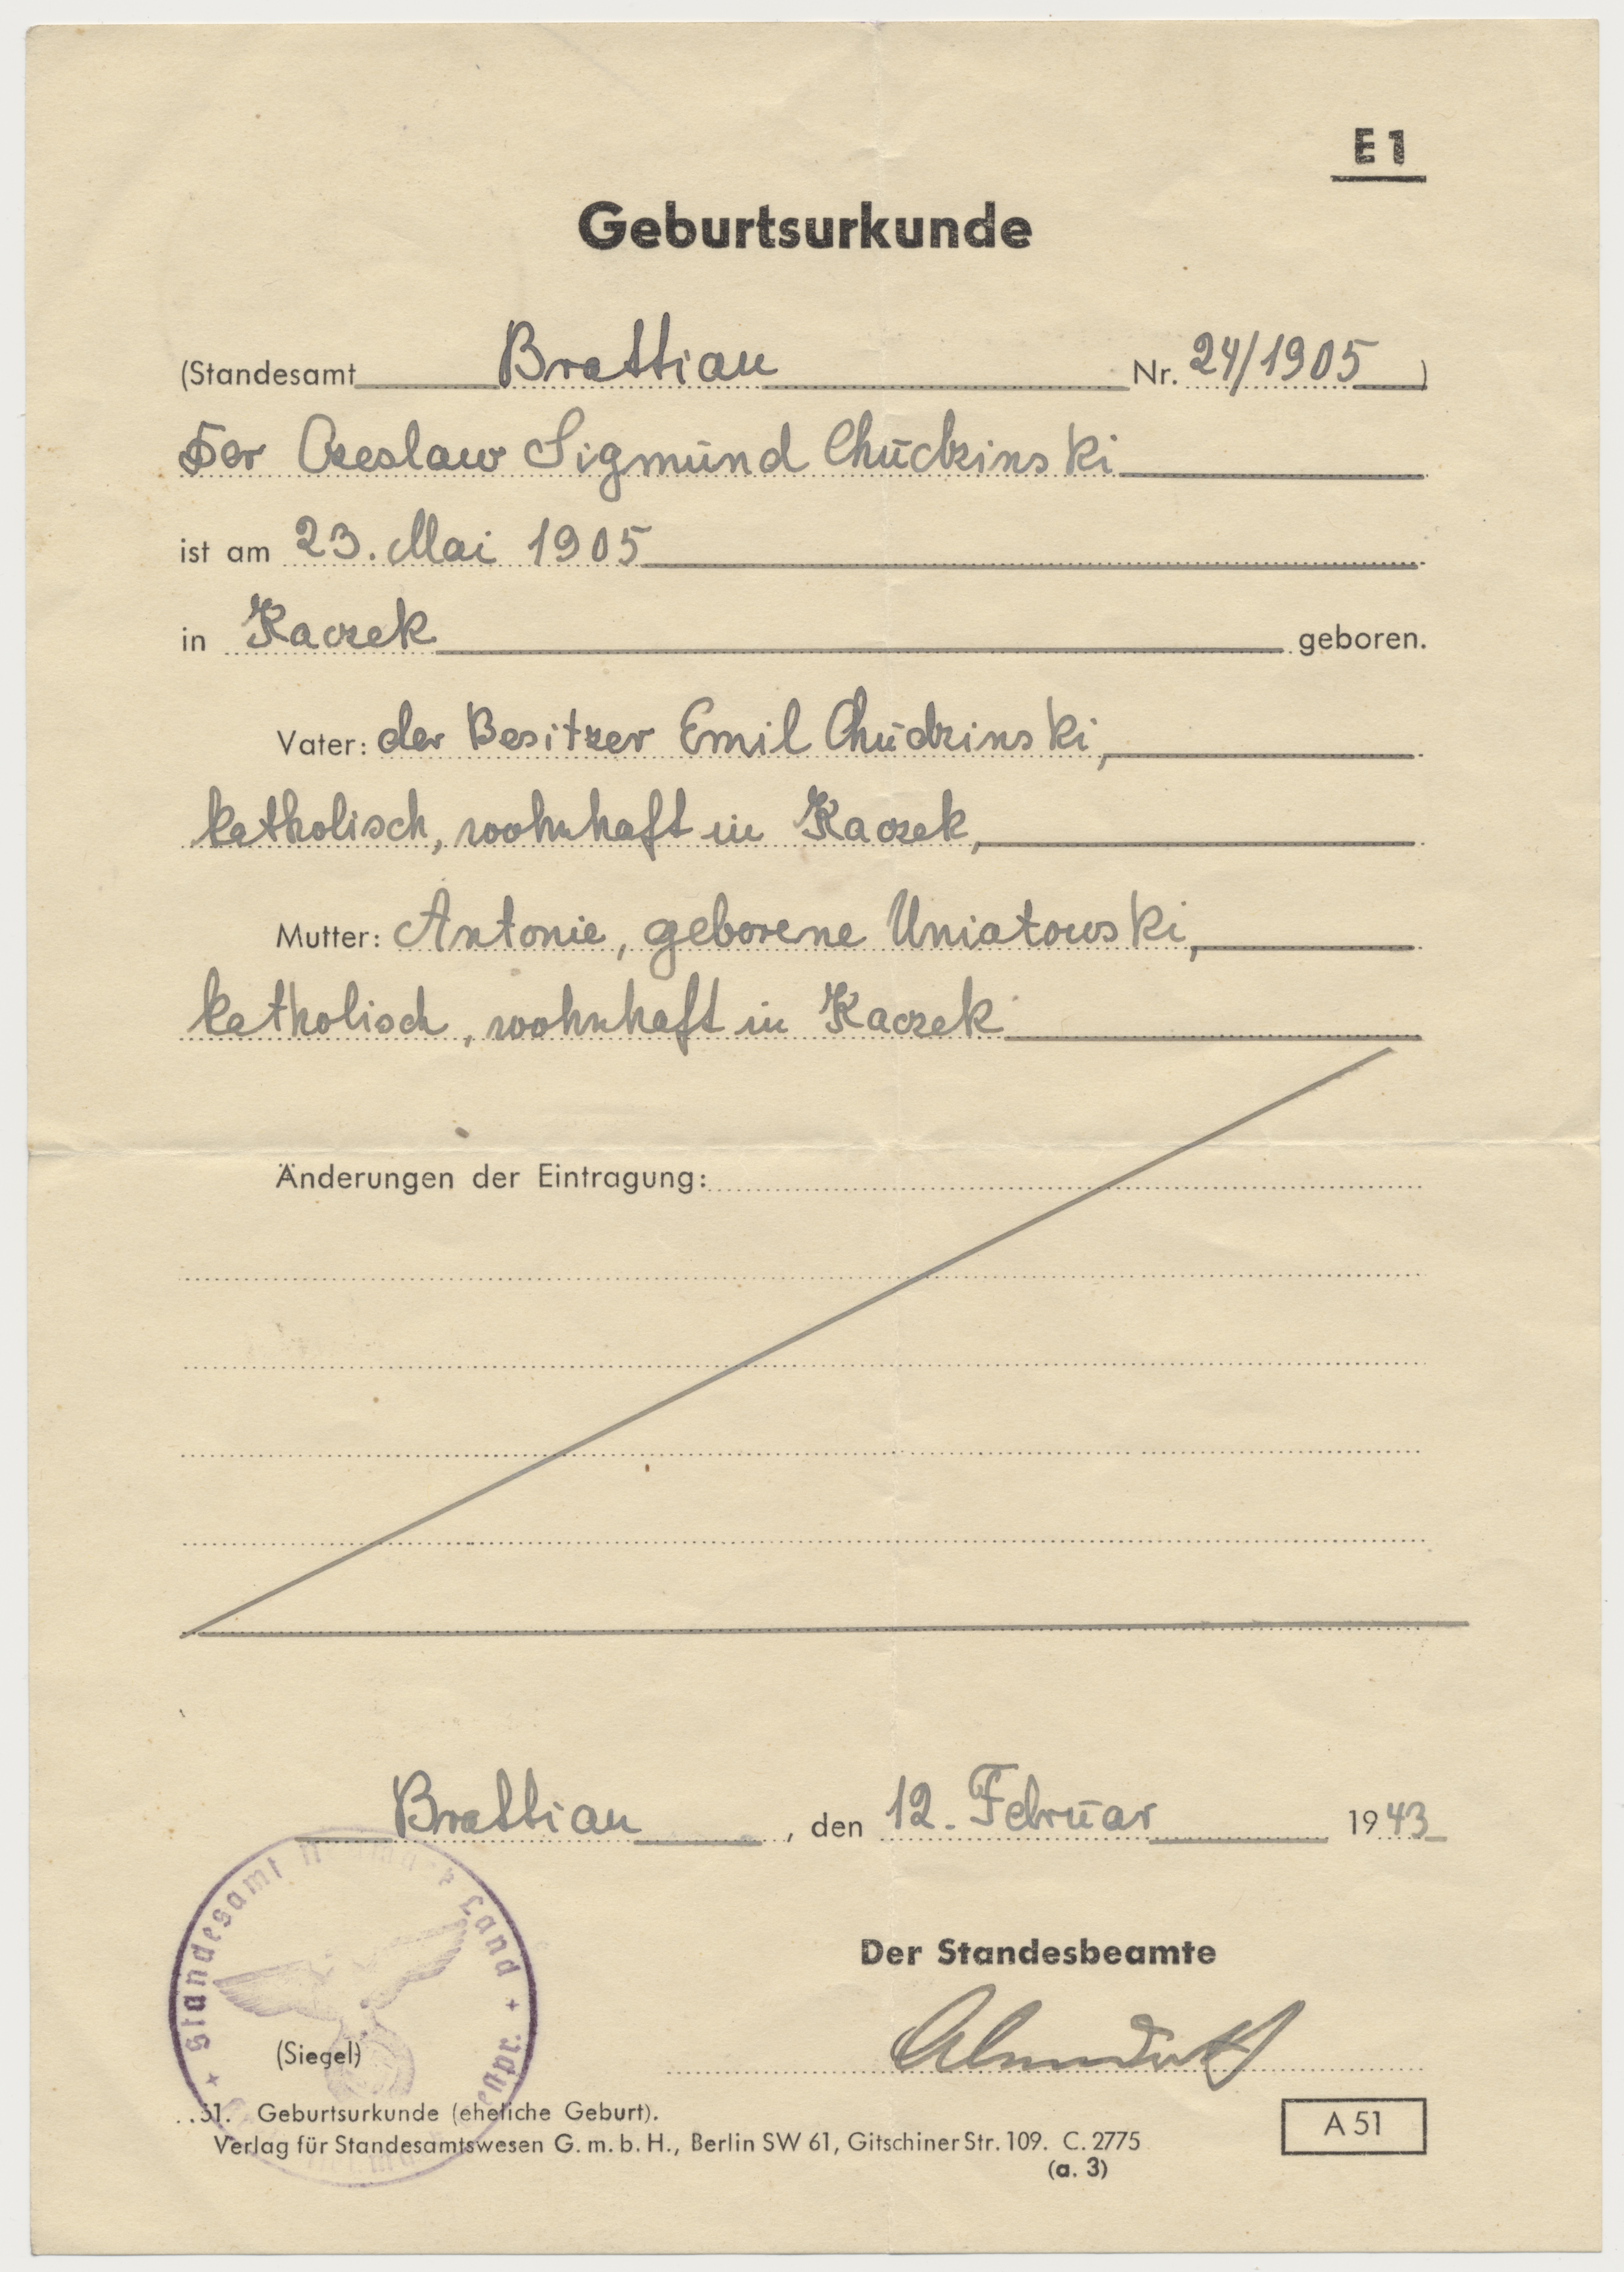 E 1
Geburtsurkunde
(Standesamt Brattian Nr. 24/1905 )
Der Czeslaw Sigmund Chudzinski
ist am 23. Mai 1905
in Kaczek geboren.
Vater: der Besitzer Emil Chudzinski,
katholisch, wohnhaft in Kaczek,
Mutter: Antonie, geborene Uniatowski,
katholisch, wohnhaft in Kaczek
Änderungen der Eintragung:
Brattian, den 12. Februar 1943
Standesamt Land
Der Standesbeamte
(Siegel)
51. Geburtsurkunde (eheliche Geburt).
A 51
Verlag für Standesamtswesen G. m. b. H., Berlin SW 61, Gitschiner Str. 109. C. 2775
(a. 3)